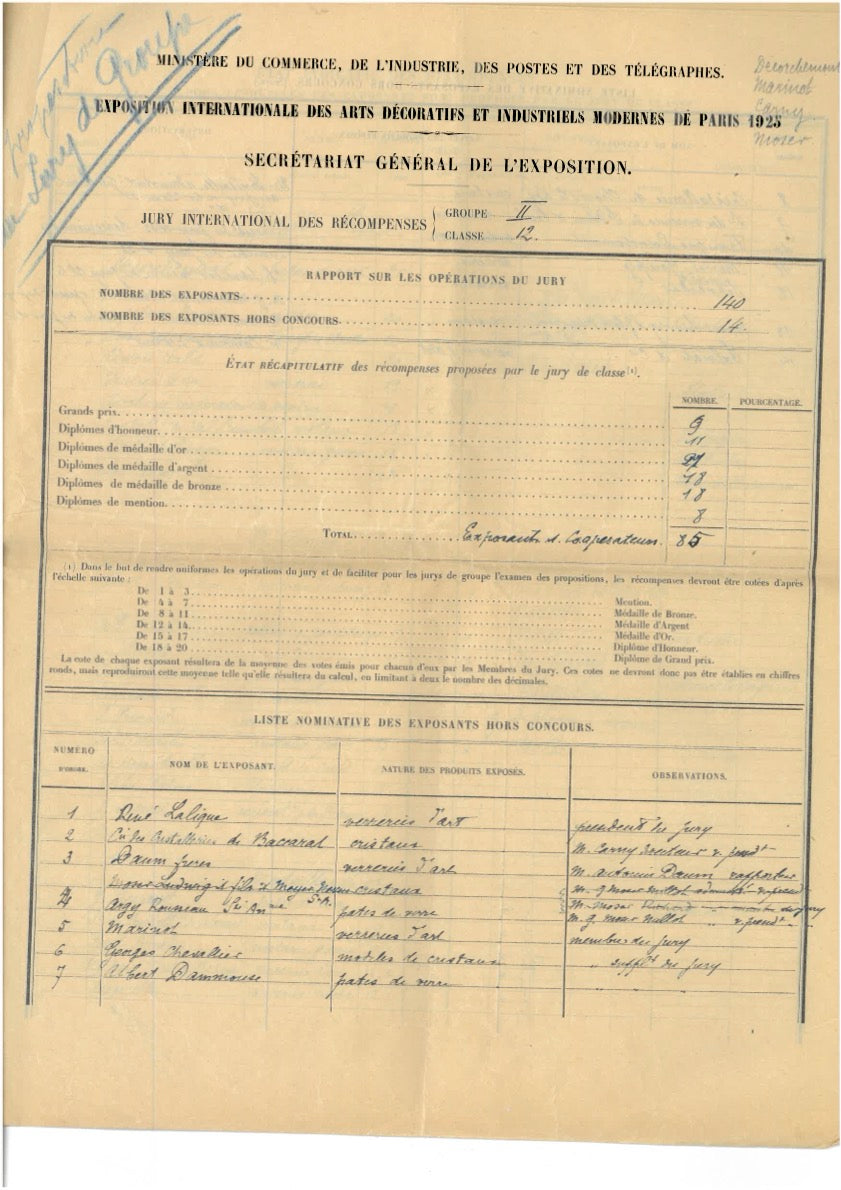 Jury de Groupe
Decorchemont
Marinot
Carny
Moser
MINISTÈRE DU COMMERCE, DE L'INDUSTRIE, DES POSTES ET DES TÉLÉGRAPHES.
EXPOSITION INTERNATIONALE DES ARTS DÉCORATIFS ET INDUSTRIELS MODERNES DE PARIS 1925
SECRÉTARIAT GÉNÉRAL DE L'EXPOSITION.
JURY INTERNATIONAL DES RÉCOMPENSES
GROUPE II
CLASSE 12.
RAPPORT SUR LES OPÉRATIONS DU JURY
NOMBRE DES EXPOSANTS 140
NOMBRE DES EXPOSANTS HORS CONCOURS 14.
ÉTAT RÉCAPITULATIF des récompenses proposées par le jury de classe (1).
NOMBRE. POURCENTAGE.
Grands prix. 9
Diplômes d'honneur. 11
Diplômes de médaille d'or 21
Diplômes de médaille d'argent 18
Diplômes de médaille de bronze 18
Diplômes de mention. 8
TOTAL. Exposants et Cooperateurs. 85
(1) Dans le but de rendre uniformes les opérations du jury et de faciliter pour les jurys de groupe l'examen des propositions, les récompenses devront être cotées d'après
l'échelle suivante :
De 1 à 3. Mention.
De 4 à 7. Médaille de Bronze.
De 8 à 11. Médaille d'Argent
De 12 à 14. Médaille d'Or.
De 15 à 17 Diplôme d'Honneur.
De 18 à 20 Diplôme de Grand prix.
La cote de chaque exposant résultera de la moyenne des votes émis pour chacun d'eux par les Membres du Jury. Ces cotes ne devront donc pas être établies en chiffres
ronds, mais reproduiront cette moyenne telle qu'elle résultera du calcul, en limitant à deux le nombre des décimales.
LISTE NOMINATIVE DES EXPOSANTS HORS CONCOURS.
NUMÉRO D'ORDRE. NOM DE L'EXPOSANT. NATURE DES PRODUITS EXPOSÉS. OBSERVATIONS.
1 René Lalique verreries d'art président du jury
2 Cie des Cristalleries de Baccarat cristaux M. Carny
3 Daum frères verreries d'art M. Antonin Daum rapporteur
Moser Ludwig & fils & Meyer Neveu cristaux
4 Argy Rousseau Sté Anme pates de verre
5 Marinot verreries d'art membre du jury
6 Georges Chevallier modèles de cristaux " suppt du jury
7 Albert Dammouse pates de verre " "